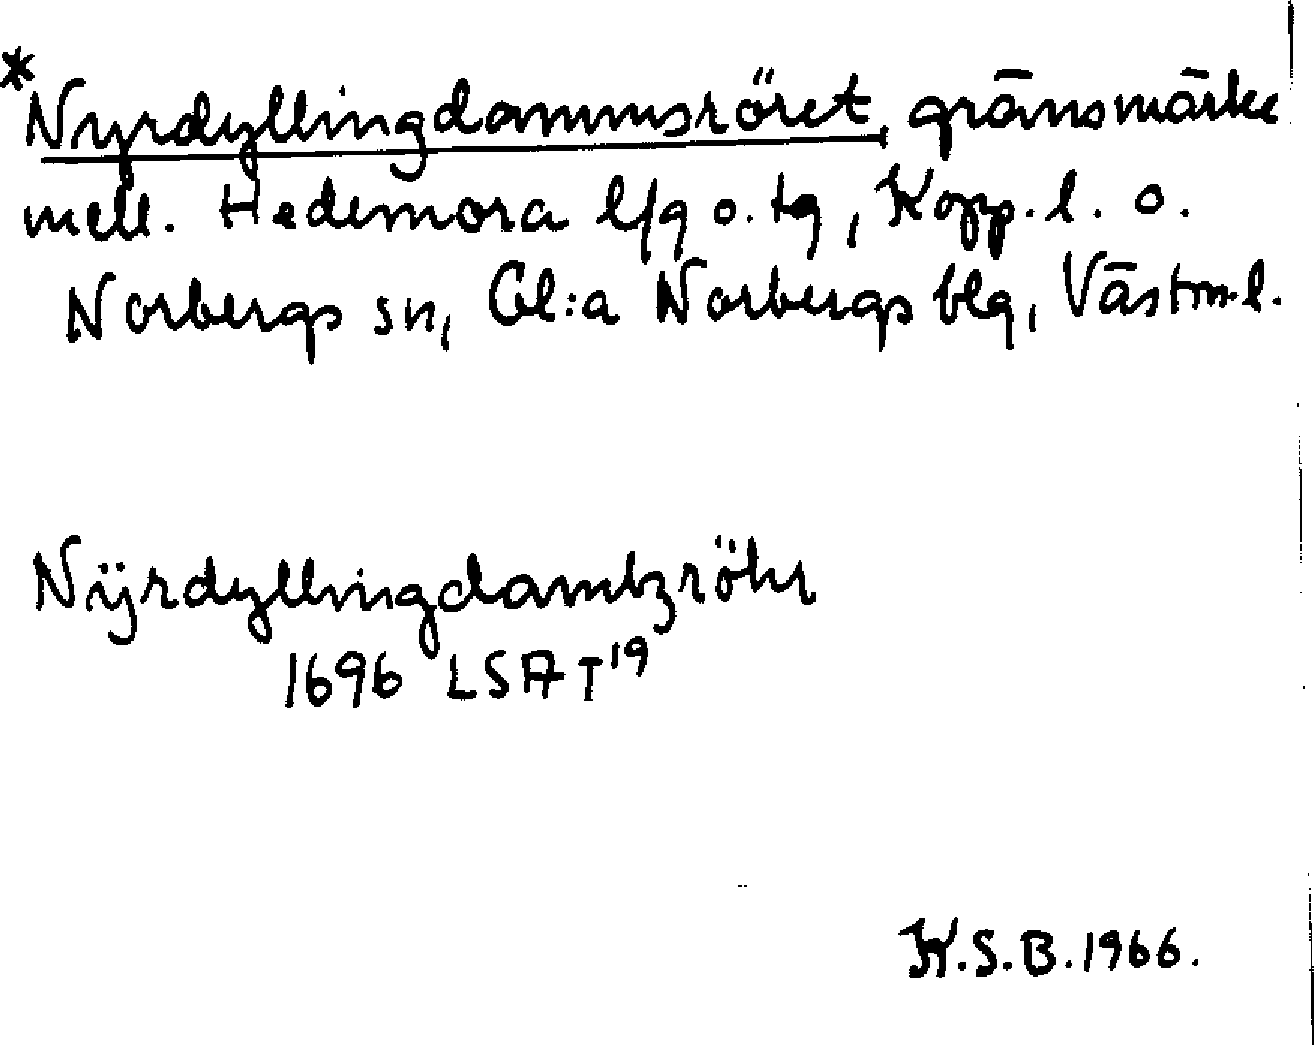 *Nyrdyllingdammsröret, gränsmärke
mell. Hedemora l/g o. tg, Kopp. l. o.
Norbergs sn, Gl:a Norbergs blg, Västm. l.
Nÿrdyllingdambzröhr
1696 LSA T19
K.S.B. 1966.